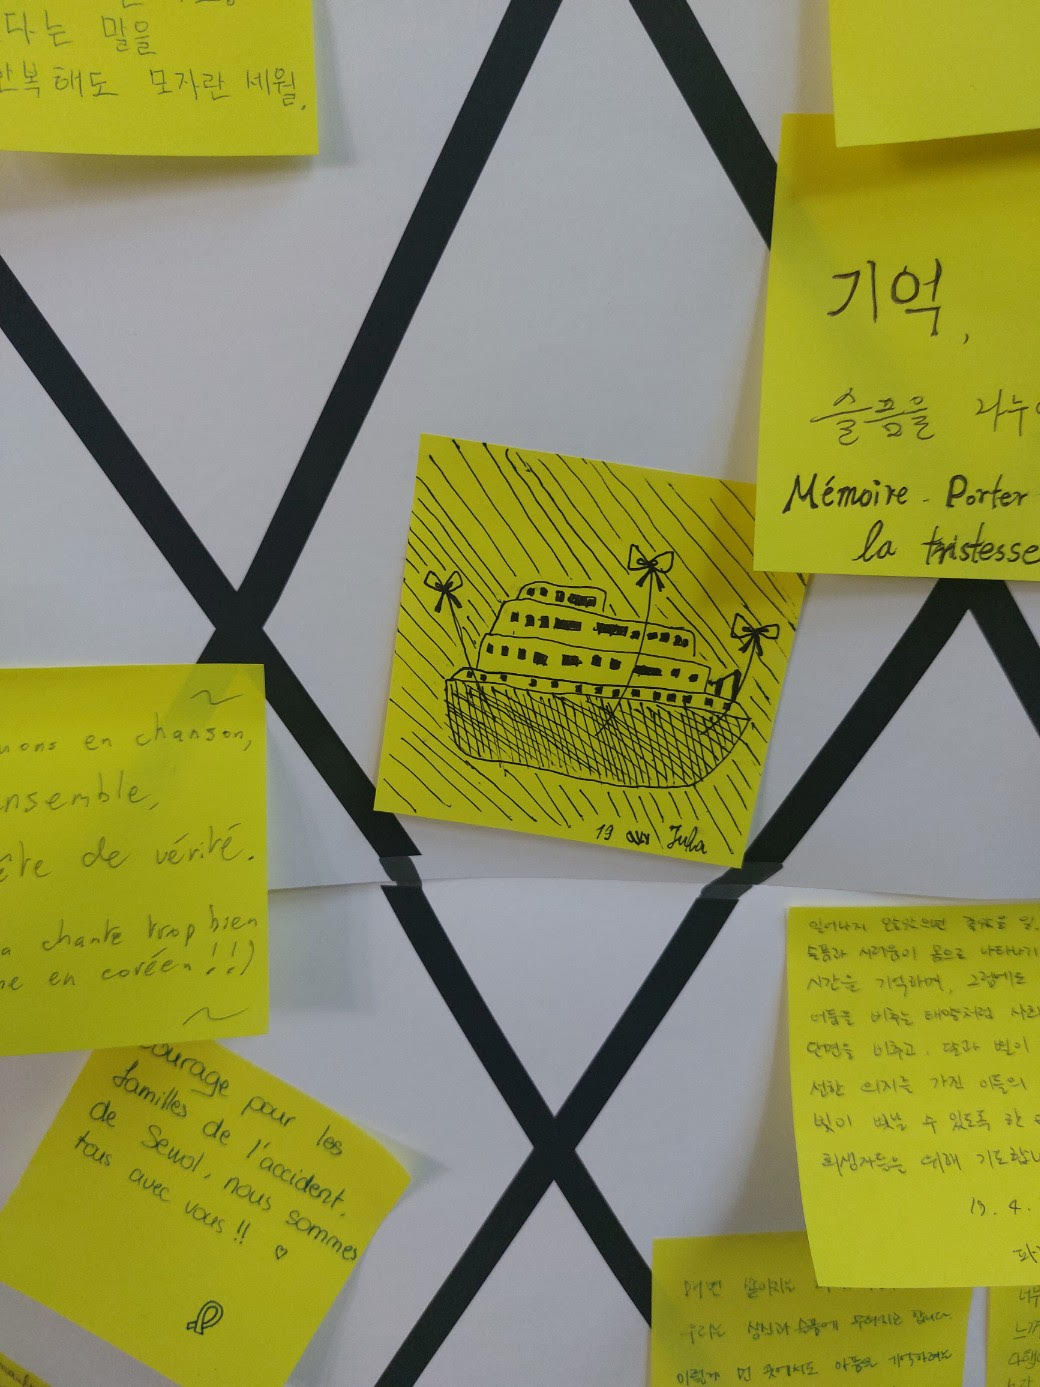 다는 말을
반복해도 모자란 세월.
기억,
슬픔을 나누
Mémoire - Porter
la tristesse
19 avr Jula
en chanson,
ensemble,
de vérité.
chante trop bien
en coréen!!)
courage pour les
familles de l'accident
de Sewol, nous sommes
tous avec vous!! ♡
일어나지 않았으면
슬픔과 서러움이 몸으로
시간을 기억하며, 그럼에도
어둠을 비추는 태양처럼
단면을 비추고, 달과 별이
선한 의지를 가진 이들의
빛이 빛날 수 있도록 한
희생자들을 위해 기도합니
19. 4.
파
매번
우리는 상실과 슬픔에 무뎌지곤 합니다.
이렇게 먼 곳에서도 아픔을 기억하려는
너무
느끼